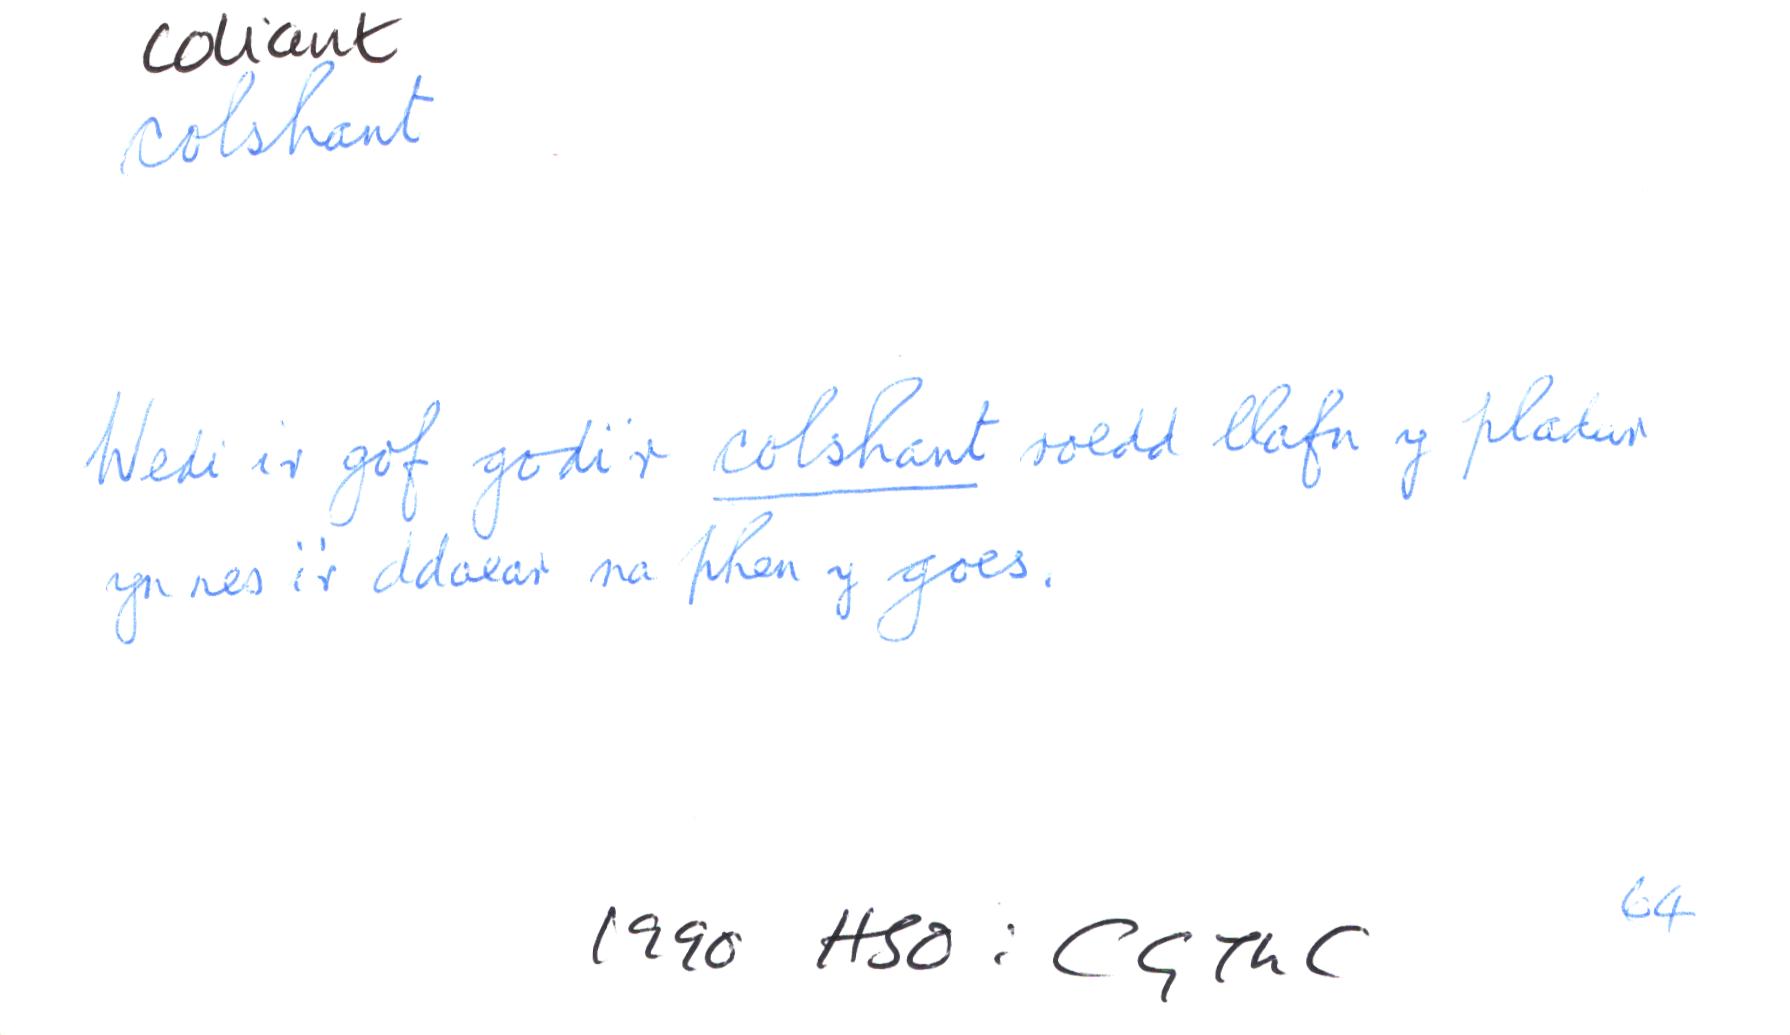 coliant
colshant
Wedi ir gof godi'r colshant roedd llafn y pladur
yn nes i'r ddaear na phen y goes.
64
1990 HSO : CGThC